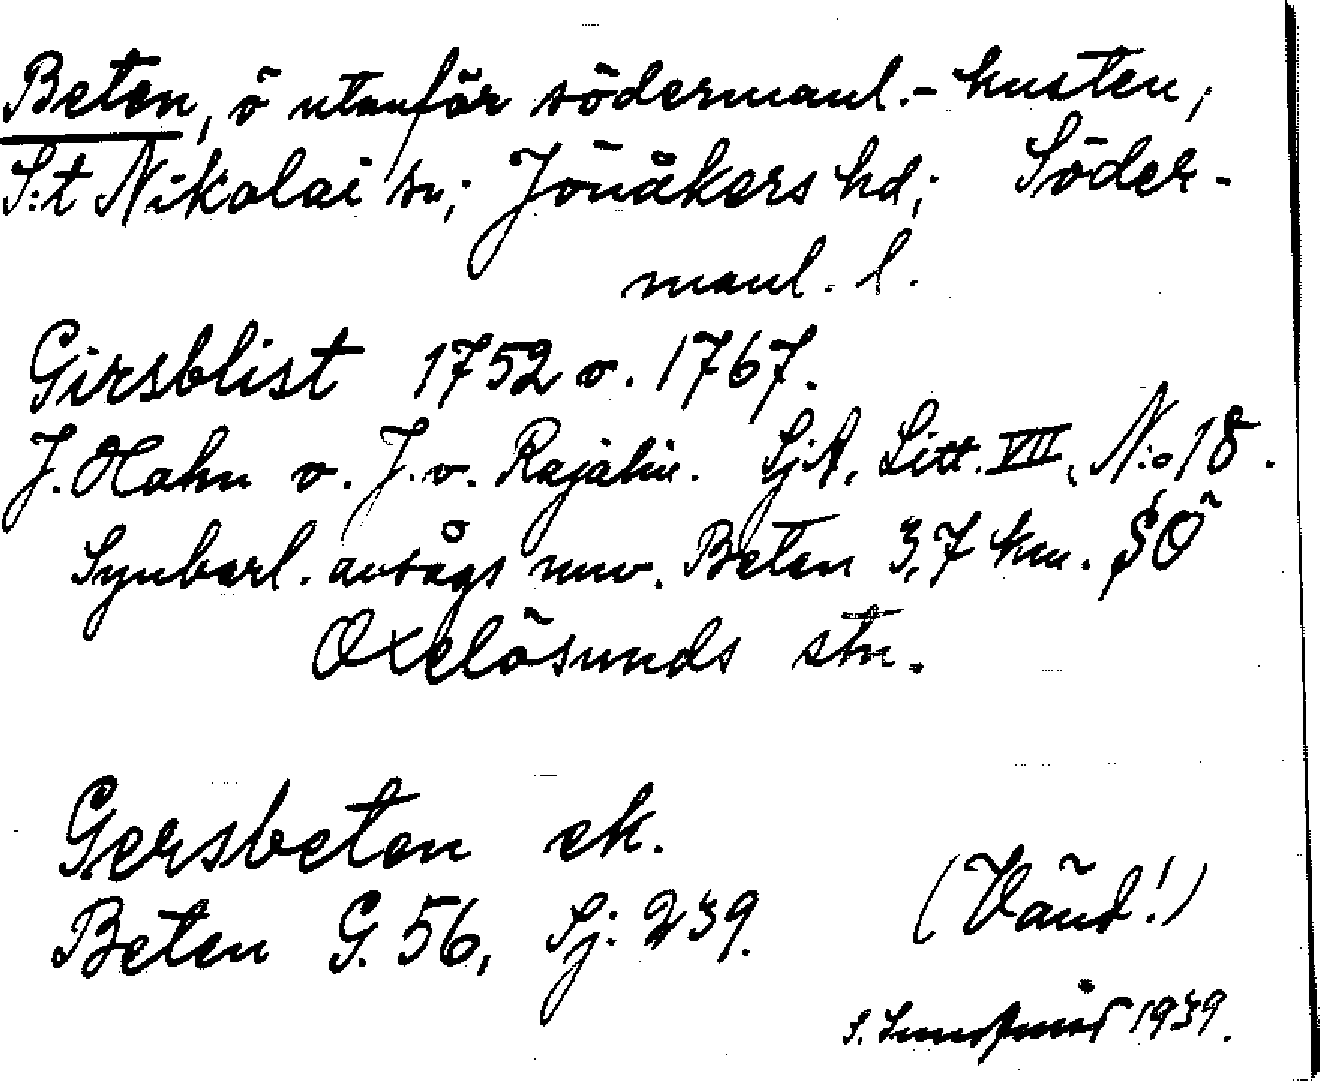 Beten, ö utanför södermanl.- kusten,
S:t Nikolai sn; Jönåkers hd; Söder-
manl. l.
Girsblist 1752 o. 1767.
J. Hahn o. J. v. Rajalin. SjA, Litt. VII, N:o 18.
Synbarl. avsågs nuv. Beten 3,7 km. SÖ
Oxelösunds stn.
Gersbeten ek.
Beten G. 56, Sj. 239.
(Vänd!)
S. 1939.